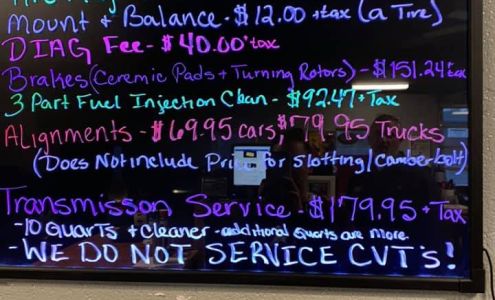 Mount & Balance - $12.00 + tax (a Tire)
DIAG Fee - $40.00 + tax
Brakes (Ceremic Pads + Turning Rotors) - $151.24 tax
3 Part Fuel Injection Clean - $92.47 + Tax
Alignments - $69.95 cars, $79.95 Trucks
(Does Not include Price for slotting / Camber bolt)
Transmisson Service - $179.95 + Tax
- 10 Quarts + cleaner - additional Quarts are more.
- WE DO NOT SERVICE CVT's!